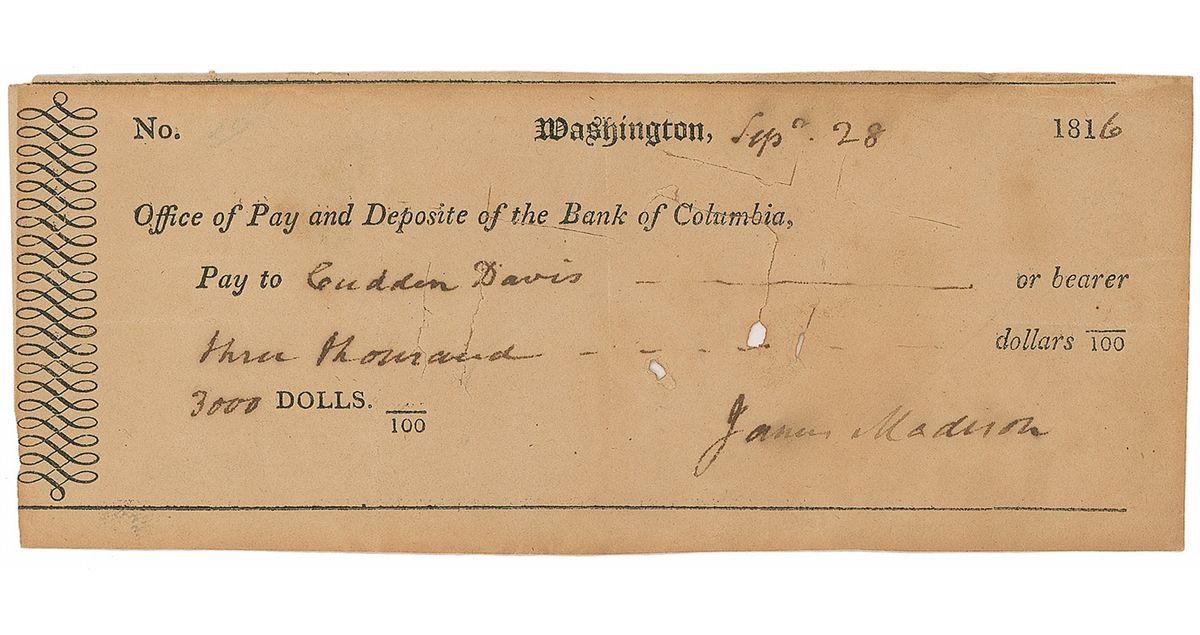 No. Washington, Sepr. 28 1816
Office of Pay and Deposite of the Bank of Columbia,
Pay to Cudden Davis or bearer
three thousand dollars /100
3000 DOLLS. /100
James Madison